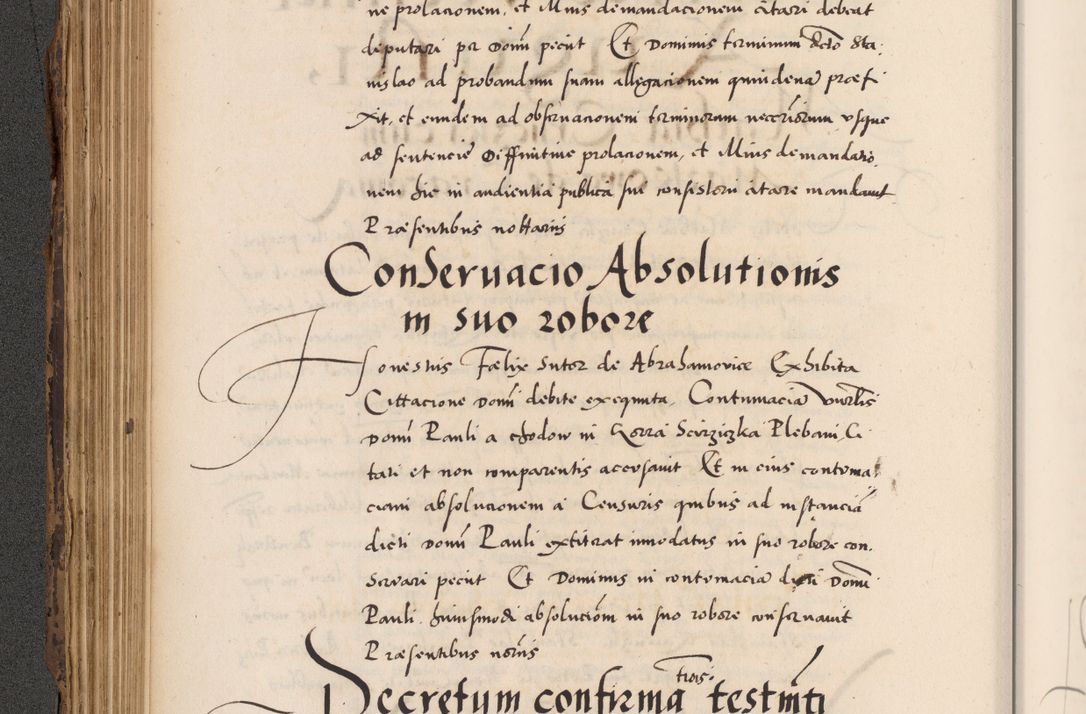 ne prolacionem, et Mius demandacionem citari debeat
deputari per Domĩ peciit Et Dominus terminum dicto Sta,
nislao ad probandum suam allegacionem quindenã præfi
xit, et eundem ad observacionem terminorum neceriorum usque
ad sentencie Diffinitive prolacionem, et Mius demandatio,
nem hic in audientia publica sui consistorii citare mandavit
Præsentibus nottariis
Conservacio Absolutionis
in suo robore
Honestus Fælix sutor de Abrahamovice Exhibita
Cittacione Domĩ debite exequuta, Contumaciã
Domĩ Pauli a chodow in Plebani, Ci
tati et non comparentis accusavit Et in eius contuma
ciam absolucionem a Censuris quibus ad instanciã
dicti Domĩ Pauli extiterat innodatus in suo robore con,
servari peciit Et Dominus in contumaciã dicti Domĩ
Pauli, huiusmodi absolucionẽ in suo robore conservavit
Præsentibus noriis
Decretum confirmationis testmti